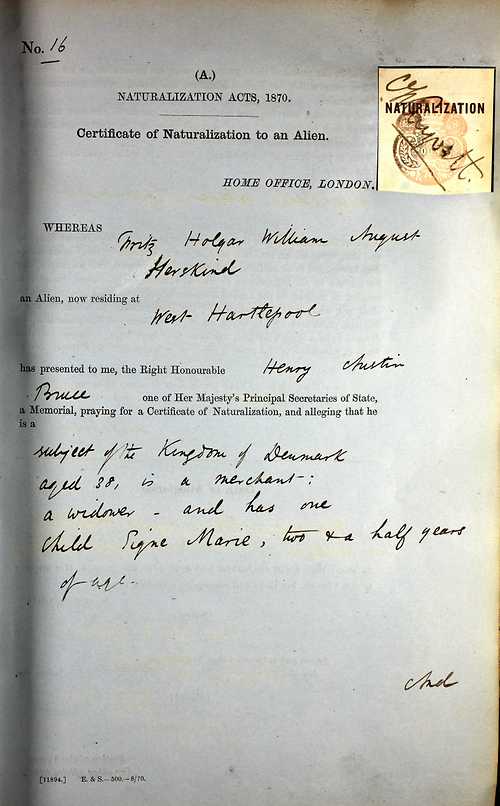 No. 16
(A.)
NATURALIZATION ACTS, 1870.
Certificate of Naturalization to an Alien.
NATURALIZATION
HOME OFFICE, LONDON.
WHEREAS Fritz Holgar William August
Herskind
an Alien, now residing at
West Hartlepool
has presented to me, the Right Honourable Henry Austin
Bruce one of Her Majesty's Principal Secretaries of State,
a Memorial, praying for a Certificate of Naturalization, and alleging that he
is a
subject of the Kingdom of Denmark
aged 38, is a merchant:
a widower - and has one
child Signe Marie, two & a half years
of age.
And
[11894.] E. & S.—500.—8/70.